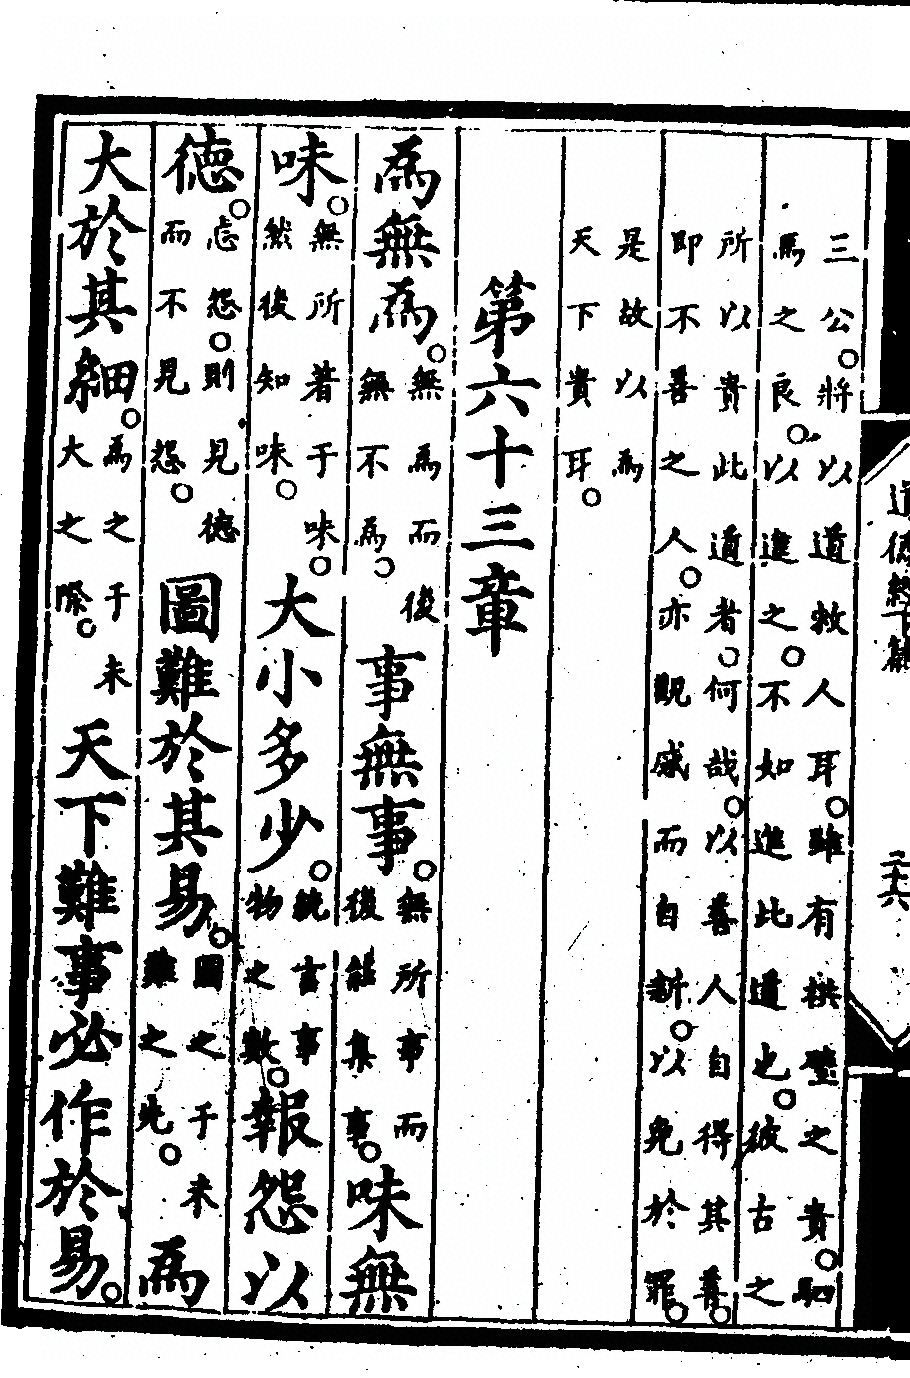 道德經下篇 二十六
三公。將以道救人耳。雖有拱璧之貴。駟
馬之良。以進之。不如進此道也。彼古之
所以貴此道者。何哉。以善人自得其善。
即不善之人。亦觀感而自新。以免於罪。
是故以為
天下貴耳。
第六十三章
為無為。無為而後無不為。事無事。無所事而後能集事。味無
味。無所著于味。然後知味。大小多少。統言事物之數。報怨以
德。忘怨。則見德而不見怨。圖難於其易。圖之于未難之先。為
大於其細。為之于未大之際。天下難事必作於易。